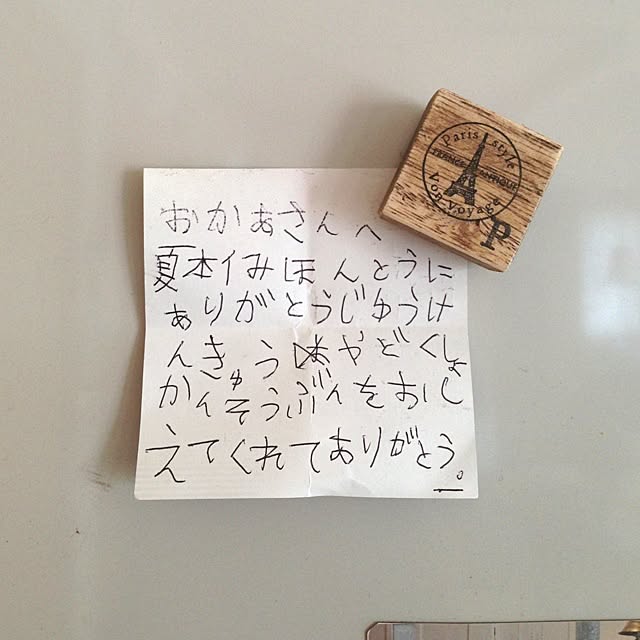 おかあさんへ
夏本イみほんとうに
ありがとうじゆうけ
んきゅうやどくしょ
かんそうぶんをおし
えてくれてありがとう。
Paris style
Bon Voyage
P